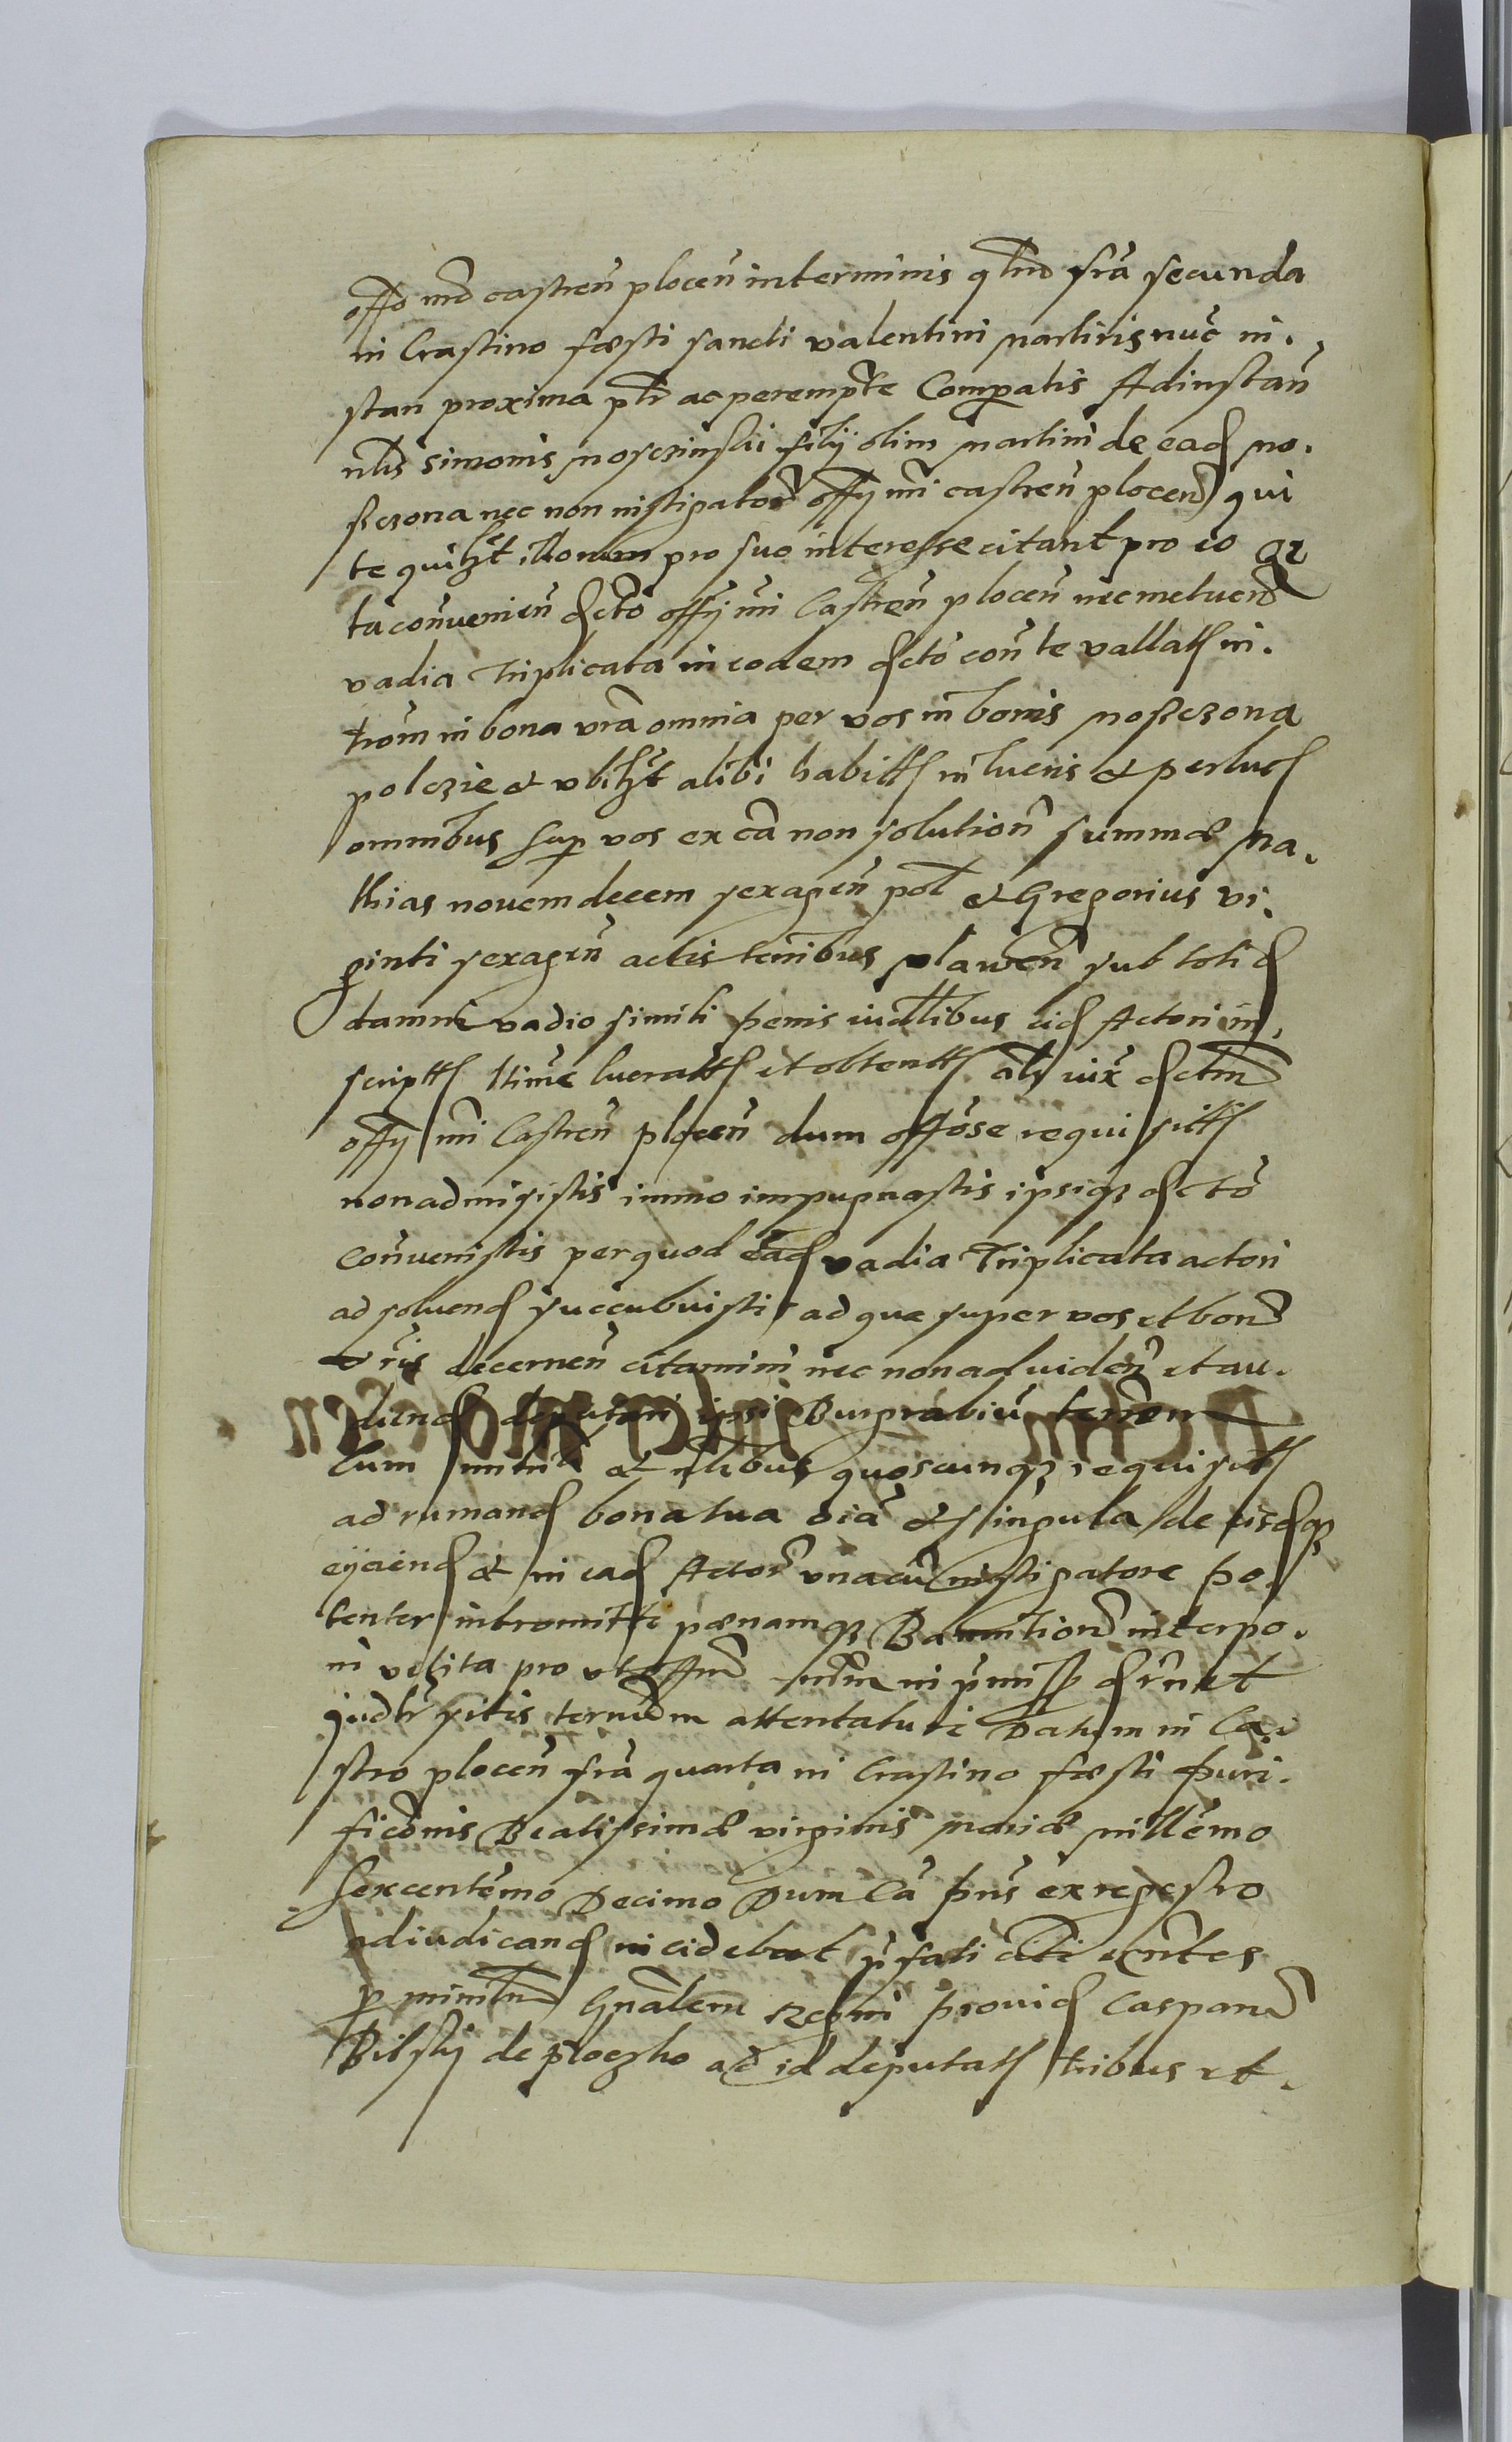 offo nrō castreñploceñ in terminis qłrñ fria secunda
in Crastino fæsti sancti valentini martirisnuc̃ in.
stan proxima ptr̃ ac perempte Comparatis Adinstañ
nłis simonis moscziński filÿ olim martini de eadꝭ mo.
sczona nec non instigatoris offÿ nri castreñ ploceñ qui
te quilꝫt illorum pro suo interesse citant pro eo qz
tu cońvenieñ dcto offÿ nri Castreñ ploceñ nec metuenꝭ
vadia Triplicata in eodem dcto coñ te vallatꝭ in.
trom̃ in bona vrã omnia per vos in bonis moszczona
polczie et vbilꝫt alibi habittꝭ in lucris et perlucꝭ
omnibus sup vos ex cã non solutioñ summæ Ma.
thias novemdecem sexageñ pol et Gregorius vi.
ginti sexageñ actis terribus plawen sub totidꝭ
damni vadio simili pænis iudłibus eidꝭ Actori in.
scriptꝭ hinc lucrattꝭ et obtenttꝭ als iux dctm
offÿ nri Castreñ ploceñ dum offose requisittꝭ
non admisistis immo impugnastis ipsiqꝫ dcto
Conuenistis per quod eadꝭ vadia Triplicata actori
ad soluendꝭ succubuistis ad quæ super vos et bona
vrıs decerneñ citamini nec non ad videñ et au.
diendꝭ deputari ipsi Burgrabiũ terren
cum mintrıı et nłibus quoscunqꝫ requisittꝭ
ad rumandꝭ bona tua oia et singula de eisdꝭqꝫ
eÿciendꝭ et in eadꝭ Actor unacũ instigatore po.
tenter intromitti pœnamqꝫ Bannitioñ interpo.
ni vetita pro vt offm nrm in p̃miss decrnet
Judr sitis terminum attentaturi Datum in Ca.
stro ploceñ fria quarta in Crastino fæsti Puri.
ficõnis Beatissimæ virginis mariæ millemo
sexcentemo Decimo Dum Cã pns ex regestro
adiudicandꝭ incidebat p̃fati citi exntes
p minitrm Gnalem Regni prouidꝭ Casparum
Bilskÿ de ploczko ad id deputatꝭ tribus et.